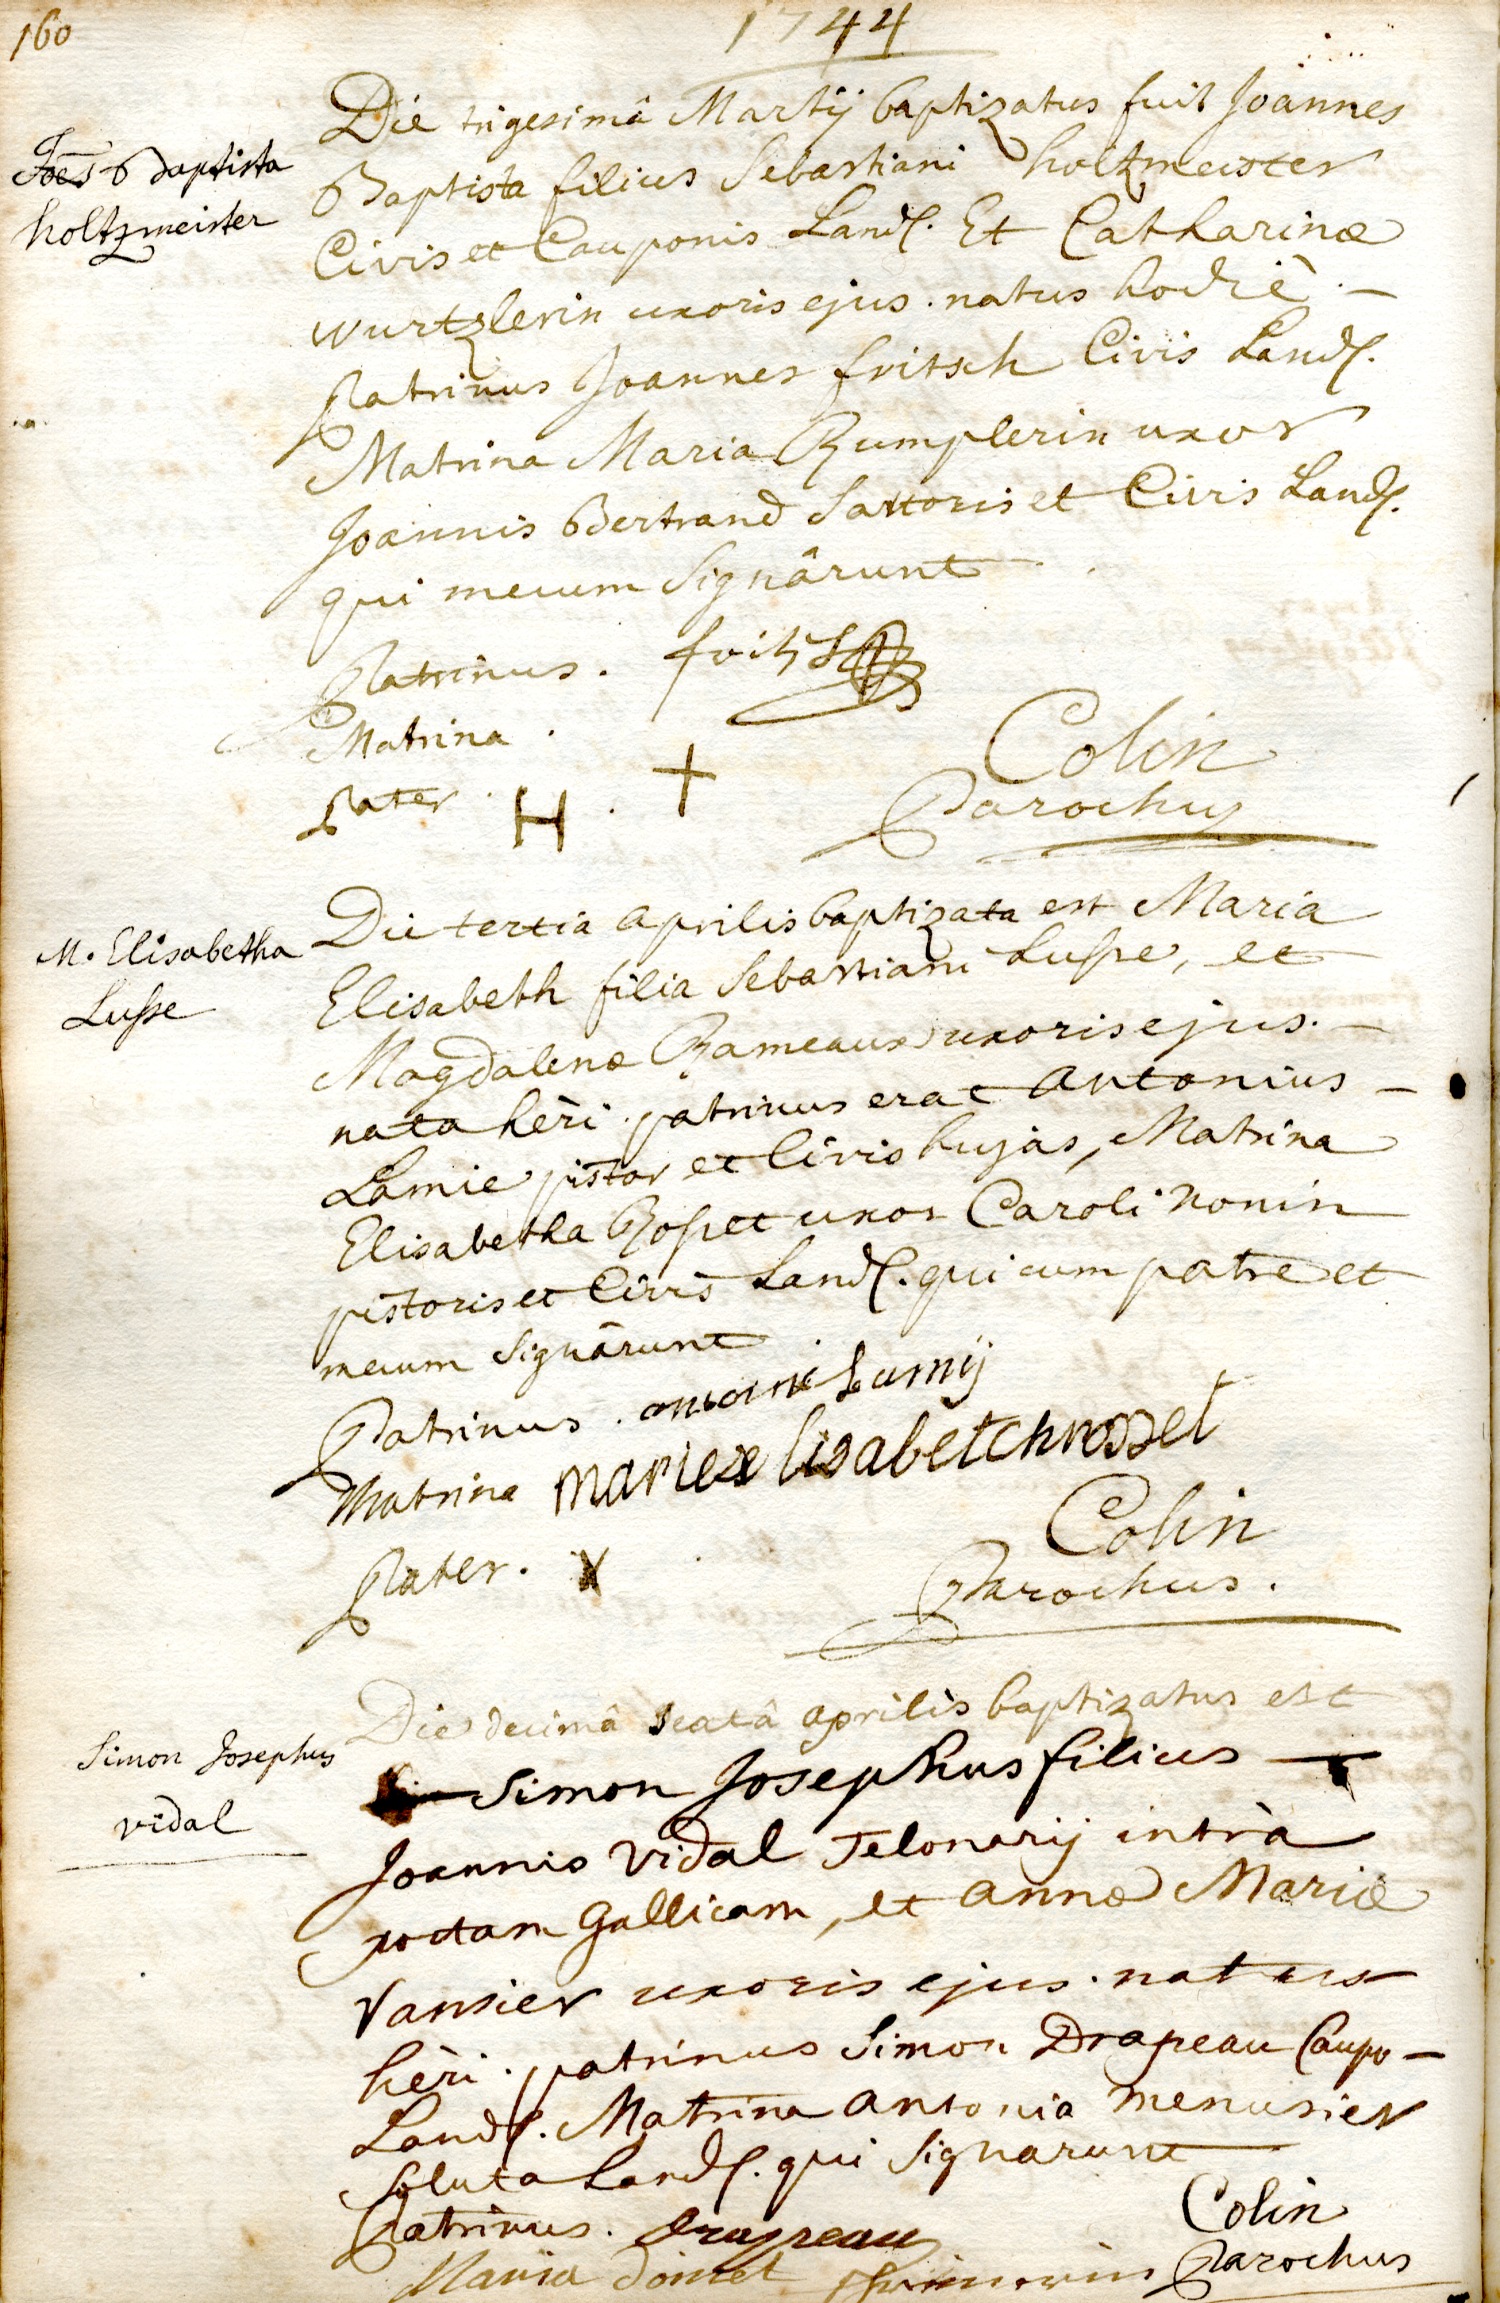 160
1744
Joēs Baptista
holtzmeister
Die trigesimâ Martij baptizatus fuit Joannes
Baptista filius Sebastiani holtzmeister
Civis et Cauponis Land. Et Catharinæ
wurtzlerin uxoris ejus. natus hodiè. —
Patrinus Joannes fritsch Civis Land.
Matrina Maria Rumplerin uxor
Joannis Bertrand Sartoris et Civis Land.
qui mecum Signârunt
Patrinus.
Matrina.
Pater. H. +
Colin
Parochus
M. Elisabetha
Lusse
Die tertia aprilis baptizata est Maria
Elisabeth filia Sebastiani Lusse, et
Magdalenæ Rameaux uxoris ejus. —
nata hèri. patrinus erat Antonius —
Lamie pistor et Civis hujas, Matrina
Elisabetha Rosset uxor Caroli Nonin
pistoris et Civis Land. qui cum patre et
mecum Signârunt
Patrinus. antoine Lamij
Matrina marie elisabetch rosset
Pater. X
Colin
Parochus.
Simon Josephus
vidal
Die decimâ sextâ aprilis baptizatus est
Simon Josephus filius —
Joannis Vidal Telonarij intrà
portam Gallicam, et annæ Mariæ
Vansier uxoris ejus. natus
hèri. patrinus Simon Drapeau Caupo —
Land. Matrina antonia menusier
soluta Land. qui Signarunt
Patrinus. Drapeau
Colin
Maria
Parochus